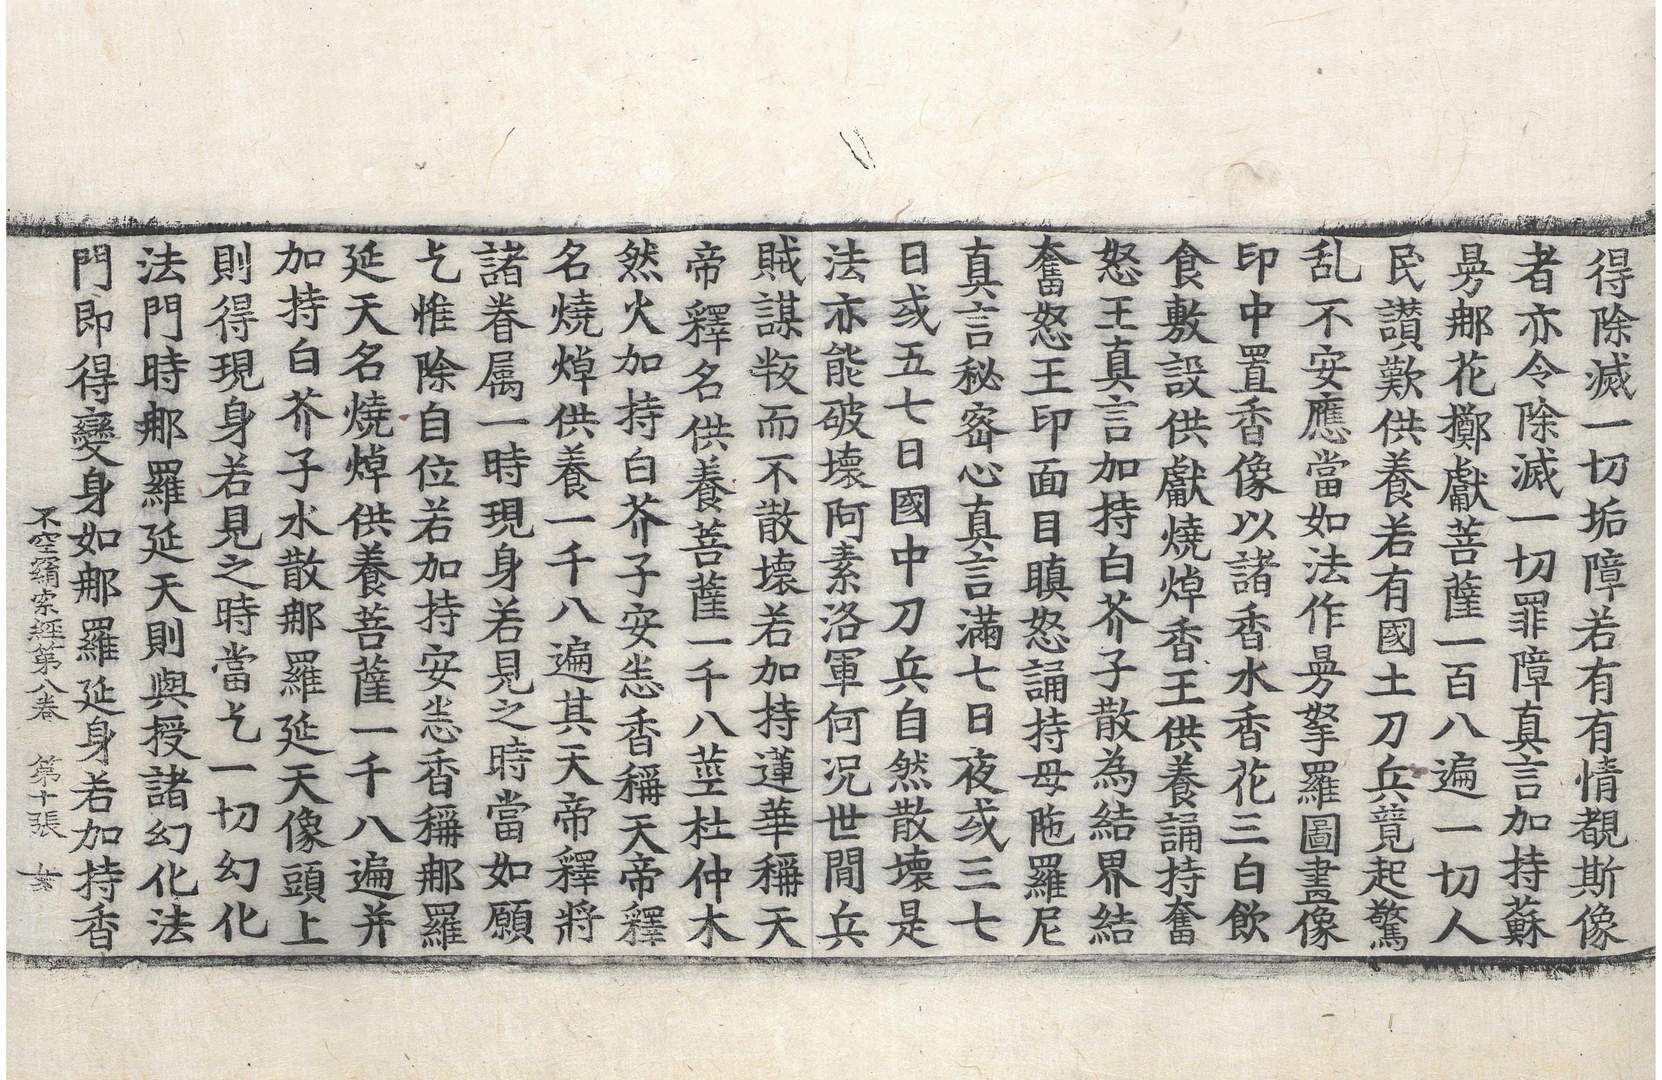 得除滅一切垢障若有有情覩斯像
者亦令除滅一切罪障真言加持蘇
曼那花擲獻菩薩一百八遍一切人
民讃歎供養若有國土刀兵競起驚
乱不安應當如法作曼拏羅圖畫像
印中置香像以諸香水香花三白飲
食敷設供獻燒焯香王供養誦持奮
怒王真言加持白芥子散為結界結
奮怒王印面目瞋怒誦持母陁羅尼
真言秘密心真言滿七日夜或三七
日或五七日國中刀兵自然散壞是
法亦能破壞阿素洛軍何况世間兵
賊謀叛而不散壞若加持蓮華稱天
帝釋名供養菩薩一千八莖杜仲木
然火加持白芥子安悉香稱天帝釋
名燒焯供養一千八遍其天帝釋將
諸眷属一時現身若見之時當如願
乞惟除自位若加持安悉香稱那羅
延天名燒焯供養菩薩一千八遍并
加持白芥子水散那羅延天像頭上
則得現身若見之時當乞一切幻化
法門時那羅延天則與授諸幻化法
門即得變身如那羅延身若加持香
不空羂索經第八卷　第十張　女